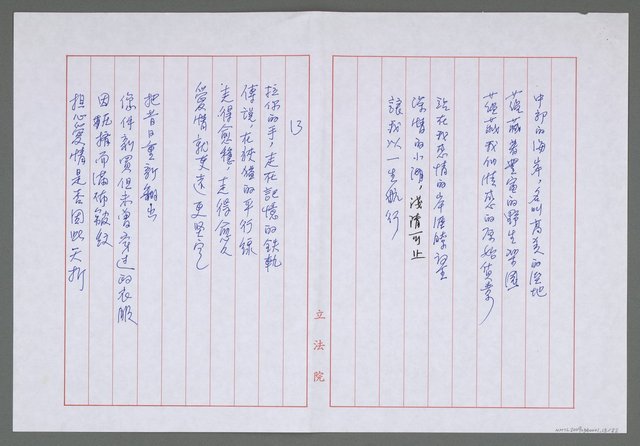 中部的海岸，名叫高美的溼地
蘊藏著豐富的野生樂園
蘊藏我仰情感的原始货素
站在我悲情的岸涯瞭望
深情的小湖，淺清可止
讓我以一生航行
13
拉你的手，走在記憶的鉄軌
傳說，在狹緒的平行線
走得愈穩，走得愈久
愛情就更遠更堅定
把昔日重新翻出
像件新買但未曾穿過的衣服
因軋擠而滿佈皺紋
担心愛情是否因此夭折
立法院